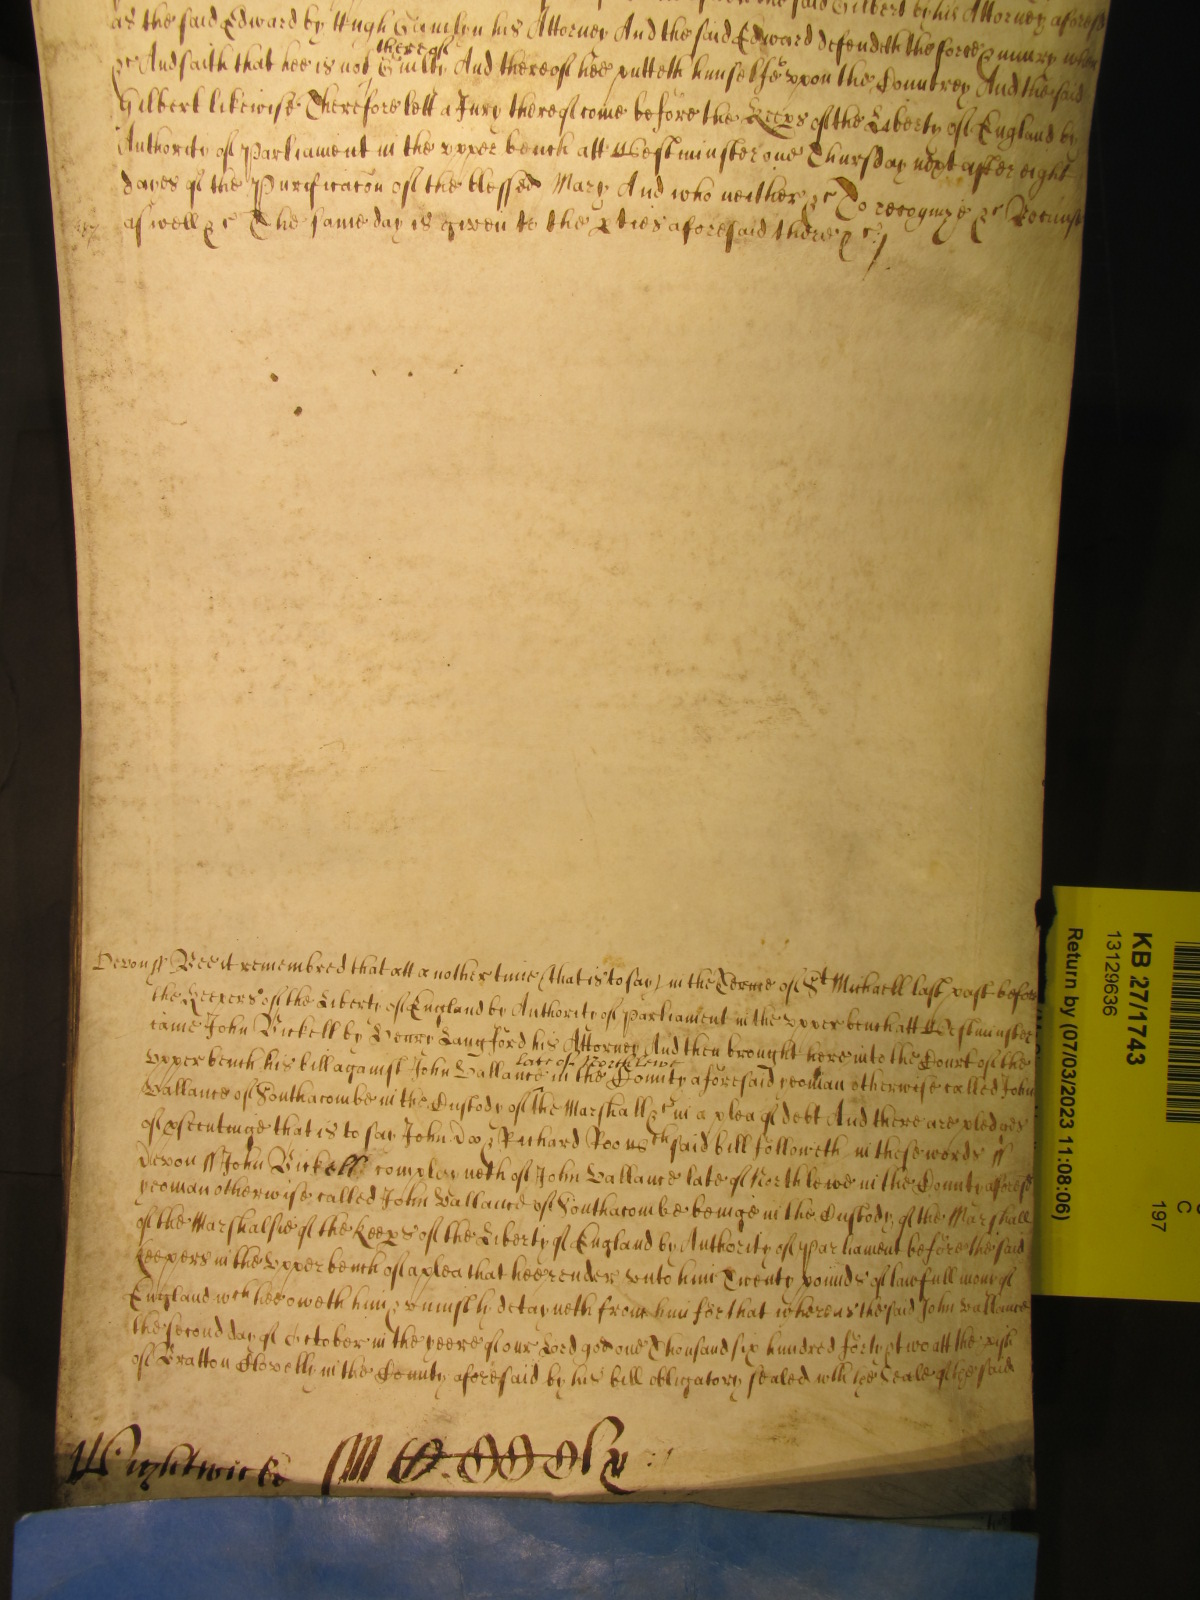 the said Gilbert by his Attorney aforesd
as the said Edward by Hugh Gamlyn his Attorney And the said Edward defendeth the force & iniury when
&c And saith that hee is not thereof Guilty And thereof hee putteth himselfe vppon the Countrey And the said
Gilbert likewise Therefore lett a Jury thereof come before the Keeps of the Liberty of England by
Authority of Parliament in the vpper bench att Westminster one Thursday next after eight
dayes of the Purificacon of the blessed Mary And who neither &c To recognize &c Because
aswell &c The same day is given to the pties aforesaid there &c
Devon ss Bee it remembred that att another time (that is to say) in the Terme of St Michaell last past before
the Keepers of the Liberty of England by Authority of Parliament in the vpper bench att Westminster
came John Bickell by Henry Langford his Attorney And then brought here into the Court of the
vpper bench his bill against John Vallance late of Northlewe in the County aforesaid yeoman otherwise called John
Vallance of Southacombe in the Custody of the Marshall &c in a plea of debt And there are pledges
of psecutinge that is to say John Doo & Richard Roo wch said bill followeth in these words ss
Devon ss John Bickell complayneth of John Vallance late of Northlewe in the County aforesd
yeoman otherwise called John Vallance of Southacombe beinge in the Custody of the Marshall
of the Marshalsie of the Keeps of the Liberty of England by Authority of Parliament before the said
keepers in the vpper bench of a plea that hee render vnto him Twenty pounds of lawfull mony of
England wch hee oweth him & vniustly detayneth from him for that whereas the said John Vallance
the second day of October in the yeere of our Lord god one Thousand six hundred forty & two att the pish
of Bratton Clovelly in the County aforesaid by his bill obligatory sealed with the Seale of the said
Wightwicke
KB 27/1743
13129636
Return by (07/03/2023 11:08:06)
C
197